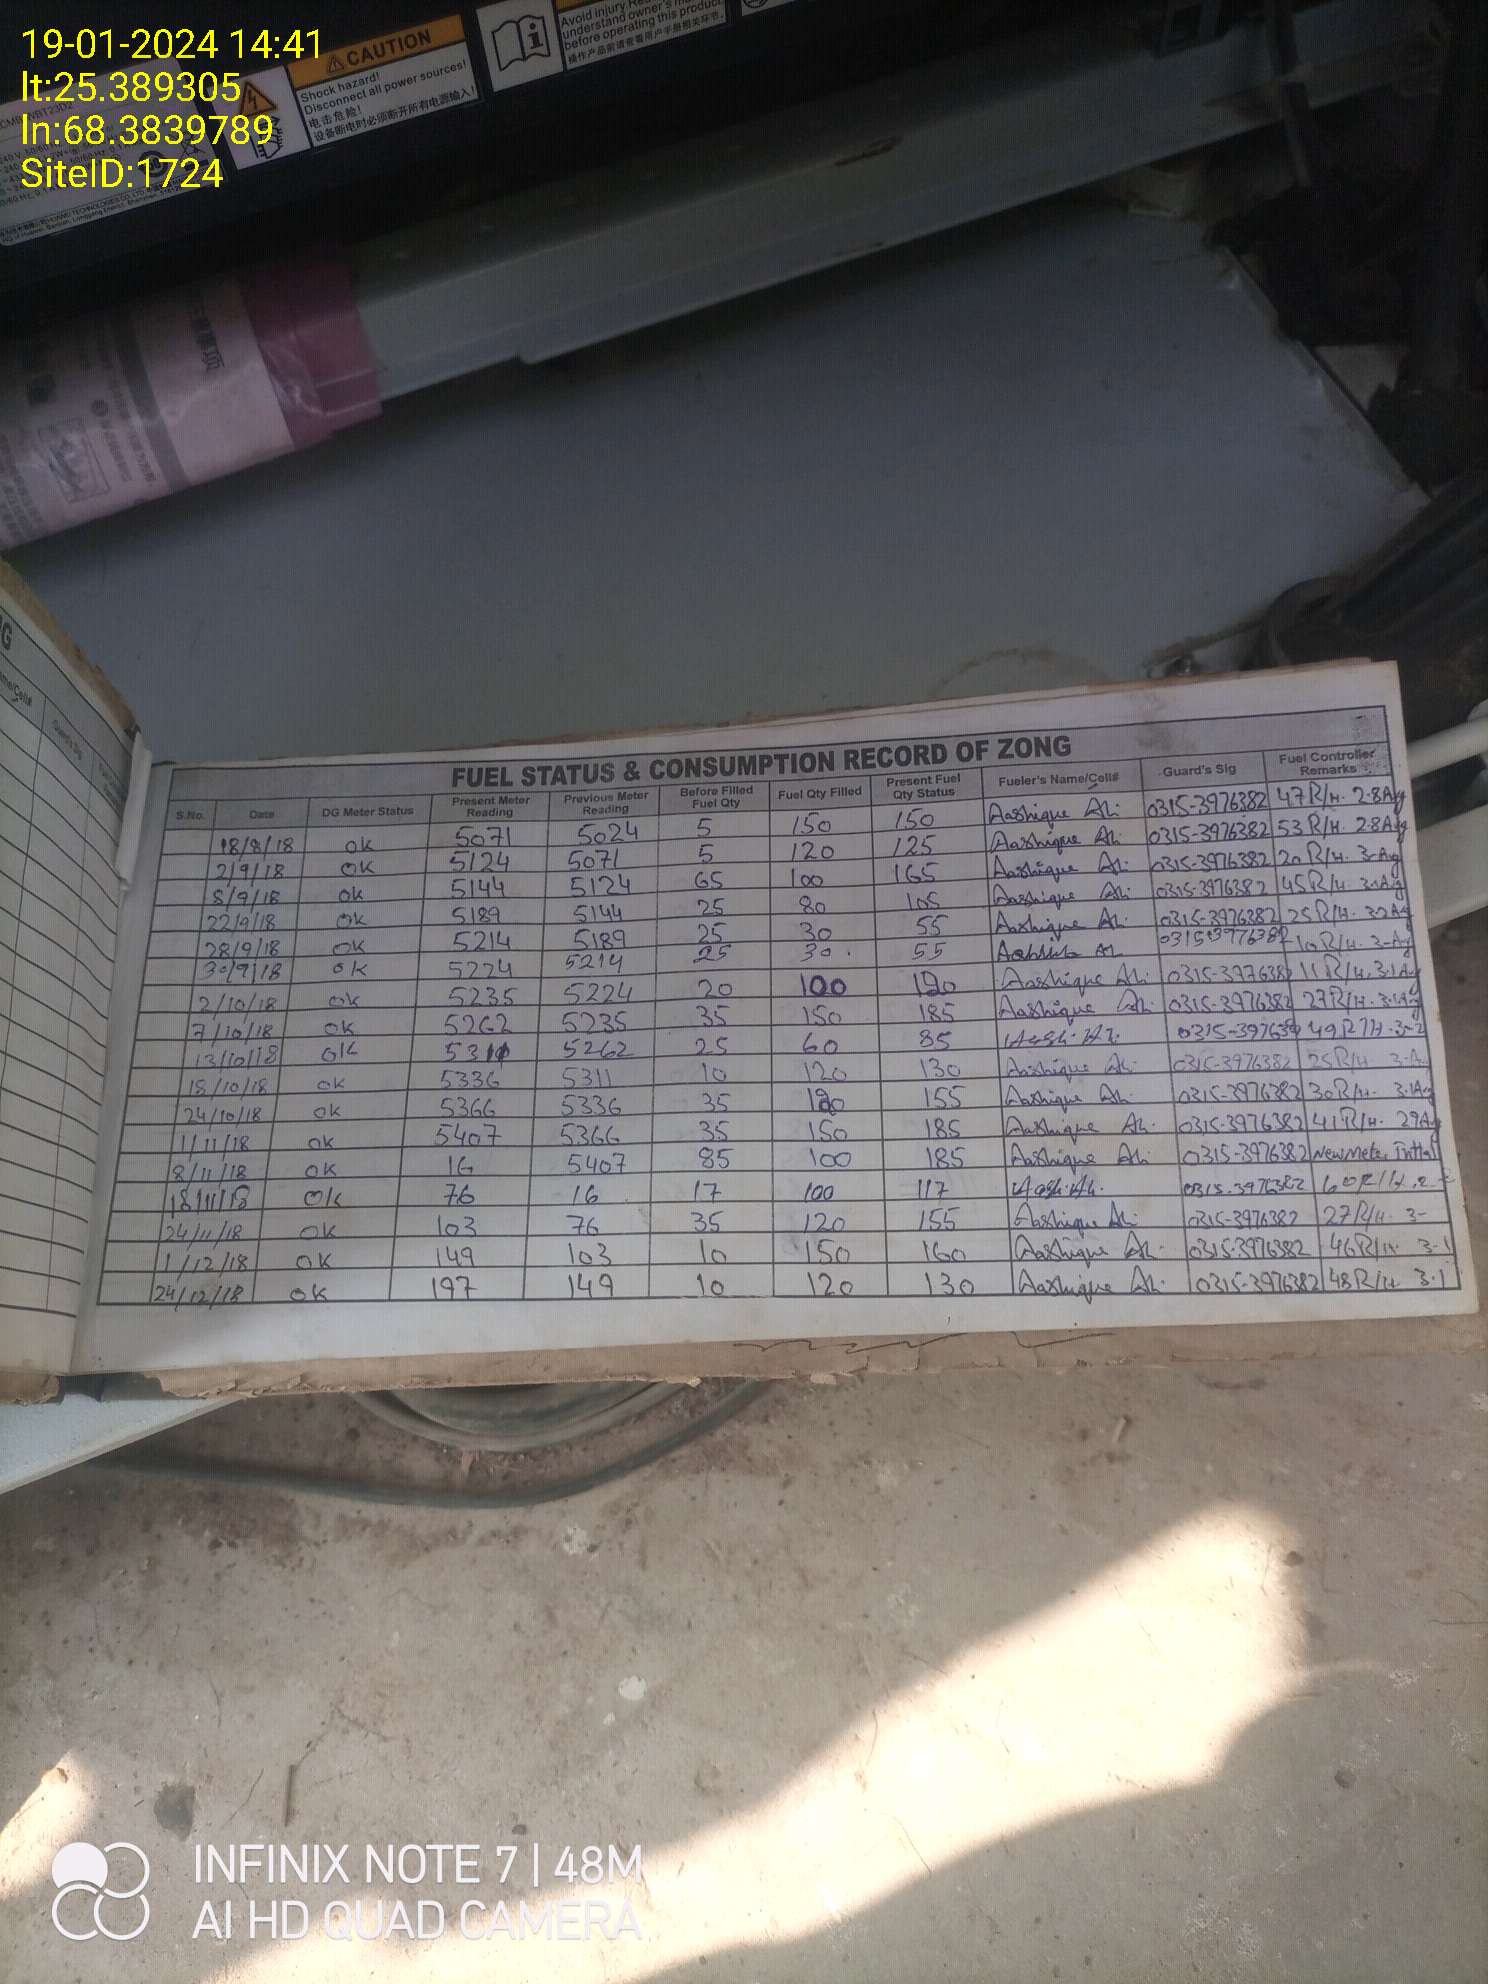 19-01-2024 14:41
lt:25.389305
ln:68.3839789
SiteID:1724
CAUTION
Shock hazard!
Disconnect all power sources!
电击危险!
设备断电时必须断开所有电源输入!
Avoid injury
understand owner's
before operating this product.
操作产品前请查看用户手册相关环节.
FUEL STATUS & CONSUMPTION RECORD OF ZONG
S.No. Date DG Meter Status Present Meter Reading Previous Meter Reading Before Filled Fuel Qty Fuel Qty Filled Present Fuel Qty Status Fueler's Name/Cell# Guard's Sig Fuel Controller Remarks
18/8/18 ok 5071 5024 5 150 150 Aashique Ali 0315-3976382 47 R/H. 2.8 Avg
2/9/18 OK 5124 5071 5 120 125 Aashique Ali 0315-3976382 53 R/H. 2.8 Avg
8/9/18 ok 5144 5124 65 100 165 Aashique Ali 0315-3976382 20 R/H. 3-Avg
22/9/18 OK 5189 5144 25 80 105 Aashique Ali 0315-3976382 45 R/H. 3.1 Avg
28/9/18 OK 5214 5189 25 30 55 Aashique Ali 0315-3976382 25 R/H. Avg
30/9/18 ok 5224 5214 25 30 55 0315-3976382 10 R/H. 3-Avg
2/10/18 ok 5235 5224 20 100 120 Aashique Ali 0315-3976382 11 R/H. 3.1 Avg
7/10/18 ok 5262 5235 35 150 185 Aashique Ali 0315-3976382 27 R/H. 3.1 Avg
13/10/18 ok 5311 5262 25 60 85 0315-397638 49 R/H. 3-2
18/10/18 ok 5336 5311 10 120 130 Aashique Ali 0315-3976382 25 R/H. 3-Av
24/10/18 ok 5366 5336 35 120 155 Aashique Ali 0315-3976382 30 R/H. 3.1 Avg
1/11/18 ok 5407 5366 35 150 185 Aashique Ali 0315-3976382 41 R/H. 29 Avg
8/11/18 OK 16 5407 85 100 185 Aashique Ali 0315-3976382 New Meter
18/11/18 Ok 76 16 17 100 117 0315-3976382 60 R/H.
24/11/18 OK 103 76 35 120 155 Aashique Ali 0315-3976382 27 R/H. 3-
1/12/18 OK 149 103 10 150 160 Aashique Ali 0315-3976382 46 R/H. 3-1
24/12/18 OK 197 149 10 120 130 Aashique Ali 0315-3976382 48 R/H 3.1
INFINIX NOTE 7 | 48M
AI HD QUAD CAMERA